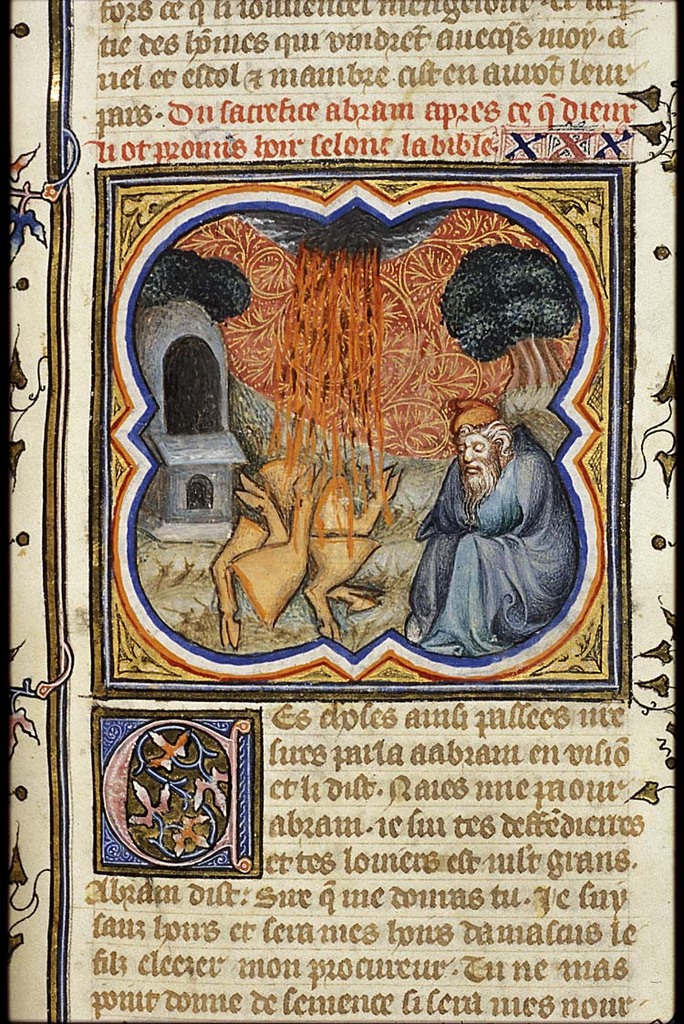 fors ce q̃ li iouuencel mengeront. et la p̱
tie des hõmes qui vindrẽt auecq̄s moy. a
nel et escol ⁊ mambre cist en aurõt leur
pars. Du sacrefice abram apres ce q̃ dieux
li ot promis hoir selonc la bible. XXX
Ces choses ainsi passees nre
sires parla a abram en visiõ
et li dist. Naies mie paour
abram. ie sui tes deffẽdierres
et tes louiers est mlt grans.
Abram dist. Sire q̃ me donras tu. Je suy
sanz hoirs et sera mes hoirs damascus le
filz eleezer mon procureur. Tu ne mas
point donne de semence si sera mes nour